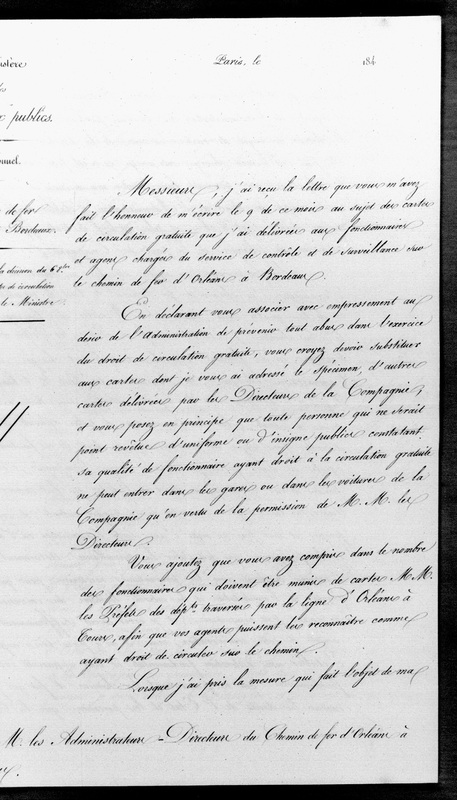 istère
Paris, le 184
x publics.
nnel.
Messieurs, j'ai reçu la lettre que vous m'avez
fait l'honneur de m'écrire le 9 de ce mois au sujet des cartes
de fer
de circulation gratuite que j'ai délivrées aux fonctionnaires
Bordeaux.
et agens chargés du service de contrôle et de surveillance sur
le chemin de fer d'Orléans à Bordeaux.
de circulation
le Ministre
En déclarant vous associer avec empressement au
désir de l'Administration de prévenir tout abus dans l'exercice
du droit de circulation gratuite, vous croyez devoir substituer
aux cartes dont je vous ai adressé le spécimen, d'autres
cartes délivrées par les Directeurs de la Compagnie,
et vous posez en principe que toute personne qui ne serait
point revêtue d'uniforme ou d'insigne publics constatant
sa qualité de fonctionnaire ayant droit à la circulation gratuite
ne peut entrer dans les gares ou dans les voitures de la
Compagnie qu'en vertu de la permission de M. M. les
Directeurs.
Vous ajoutez que vous avez compris dans le nombre
des fonctionnaires qui doivent être munis de cartes M. M.
les Préfets des dépts. traversés par la ligne d'Orléans à
Tours, afin que vos agents puissent les reconnaître comme
ayant droit de circuler sur le chemin.
Lorsque j'ai pris la mesure qui fait l'objet de ma
M. les Administrateurs - Directeurs du Chemin de fer d'Orléans à